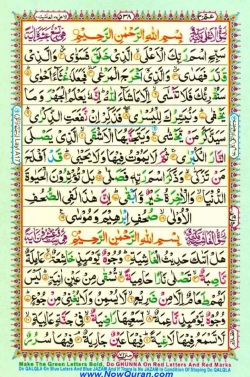 بِسْمِ اللّٰهِ الرَّحْمٰنِ الرَّحِيْمِ
سَبِّحِ اسْمَ رَبِّكَ الْاَعْلَى الَّذِىْ خَلَقَ فَسَوّٰى وَالَّذِىْ
قَدَّرَ فَهَدٰى وَالَّذِىْۤ اَخْرَجَ الْمَرْعٰى فَجَعَلَهٗ غُثَآءً اَحْوٰى
سَنُقْرِئُكَ فَلَا تَنْسٰٓى اِلَّا مَا شَآءَ اللّٰهُ اِنَّهٗ يَعْلَمُ الْجَهْرَ وَمَا
يَخْفٰى وَنُيَسِّرُكَ لِلْيُسْرٰى فَذَكِّرْ اِنْ نَّفَعَتِ الذِّكْرٰى
سَيَذَّكَّرُ مَنْ يَّخْشٰى وَيَتَجَنَّبُهَا الْاَشْقَى الَّذِىْ يَصْلَى
النَّارَ الْكُبْرٰى ثُمَّ لَا يَمُوْتُ فِيْهَا وَلَا يَحْيٰى قَدْ اَفْلَحَ
مَنْ تَزَكّٰى وَذَكَرَ اسْمَ رَبِّهٖ فَصَلّٰى بَلْ تُؤْثِرُوْنَ الْحَيٰوةَ
الدُّنْيَا وَالْاٰخِرَةُ خَيْرٌ وَّاَبْقٰى اِنَّ هٰذَا لَفِى الصُّحُفِ
الْاُوْلٰى صُحُفِ اِبْرٰهِيْمَ وَمُوْسٰى
بِسْمِ اللّٰهِ الرَّحْمٰنِ الرَّحِيْمِ
هَلْ اَتٰىكَ حَدِيْثُ الْغَاشِيَةِ وُجُوْهٌ يَّوْمَئِذٍ خَاشِعَةٌ عَامِلَةٌ
نَّاصِبَةٌ تَصْلٰى نَارًا حَامِيَةً تُسْقٰى مِنْ عَيْنٍ اٰنِيَةٍ لَيْسَ
لَهُمْ طَعَامٌ اِلَّا مِنْ ضَرِيْعٍ لَّا يُسْمِنُ وَلَا يُغْنِىْ مِنْ جُوْعٍ
وُجُوْهٌ يَّوْمَئِذٍ نَّاعِمَةٌ لِّسَعْيِهَا رَاضِيَةٌ فِىْ جَنَّةٍ عَالِيَةٍ
لَّا تَسْمَعُ فِيْهَا لَاغِيَةً فِيْهَا عَيْنٌ جَارِيَةٌ فِيْهَا سُرُرٌ
Make The Green Letters Bold, Do GHUNNA On Red Letters And Red Marks
Do QALQLA On Blue Letters And Blue JAZAM And If There Is No JAZAM In Condition Of Stoping Do QALQALA
www.NowQuran.com